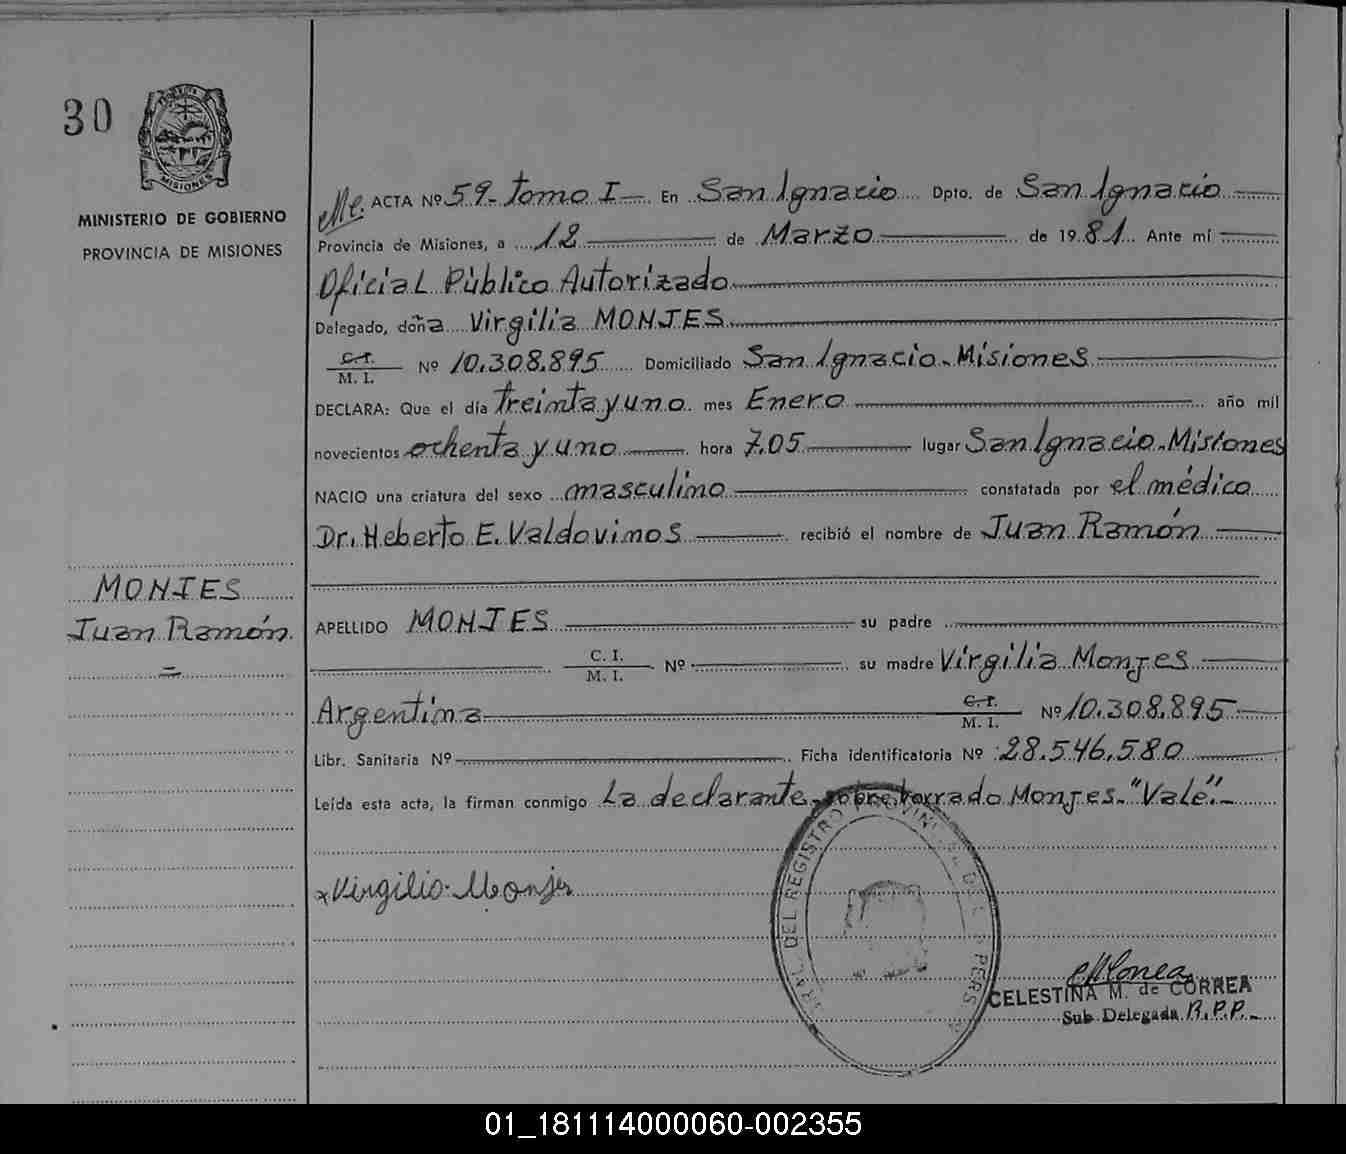 30
MISIONES
MINISTERIO DE GOBIERNO
PROVINCIA DE MISIONES
MONJES
Juan Ramón.
ACTA Nº 59- tomo I En San Ignacio Dpto. de San Ignacio
Provincia de Misiones, a 12 de Marzo de 1981. Ante mí
Oficial Público Autorizado
Delegado, doña Virgilia MONJES
C.I. / M.I. Nº 10.308.895 Domiciliado San Ignacio-Misiones
DECLARA: Que el día treinta y uno mes Enero año mil
novecientos ochenta y uno hora 7,05 lugar San Ignacio-Misiones
NACIO una criatura del sexo masculino constatada por el médico
Dr. Heberto E. Valdovinos recibió el nombre de Juan Ramón
APELLIDO MONJES su padre
C. I. / M. I. Nº su madre Virgilia Monjes
Argentina C.I. / M. I. Nº 10.308.895
Libr. Sanitaria Nº Ficha identificatoria Nº 28.546.580
Leída esta acta, la firman conmigo La declarante-sobreborrado Monjes-"Vale".-
x Virgilio Monjes
DEL REGISTRO PROVINCIAL DE
CELESTINA M. de CORREA
Sub Delegada R.P.P.
01_181114000060-002355